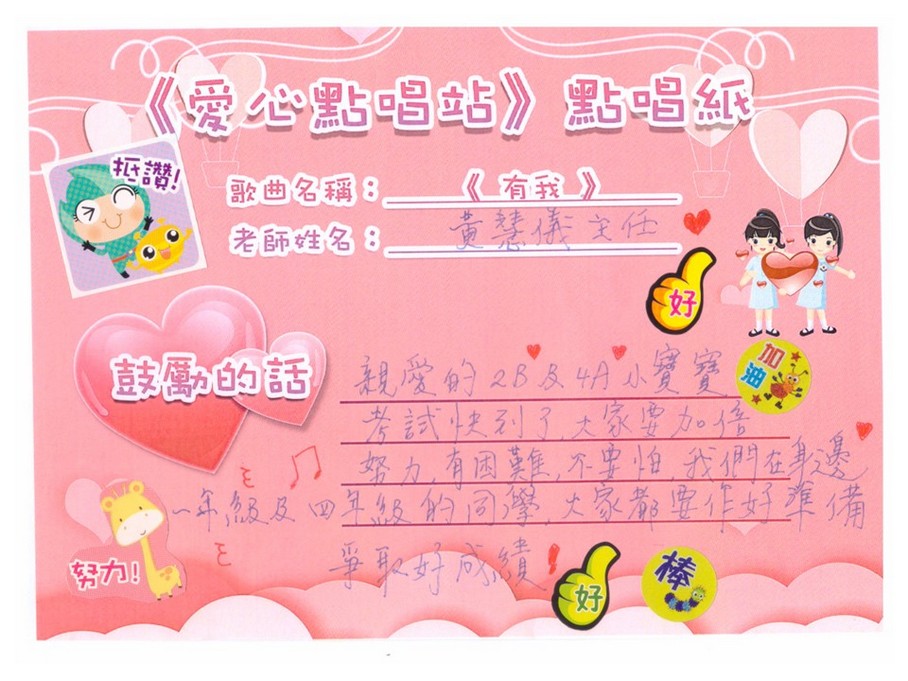 《愛心點唱站》點唱紙
抵讚!
歌曲名稱：《 有我 》
老師姓名：黃慧儀主任
好
鼓勵的話
加油
親愛的2B及4A小寶寶
考試快到了,大家要加倍
努力,有困難,不要怕,我們在身邊
一年級及四年級的同學,大家都要作好準備
爭取好成績!
努力!
好
棒